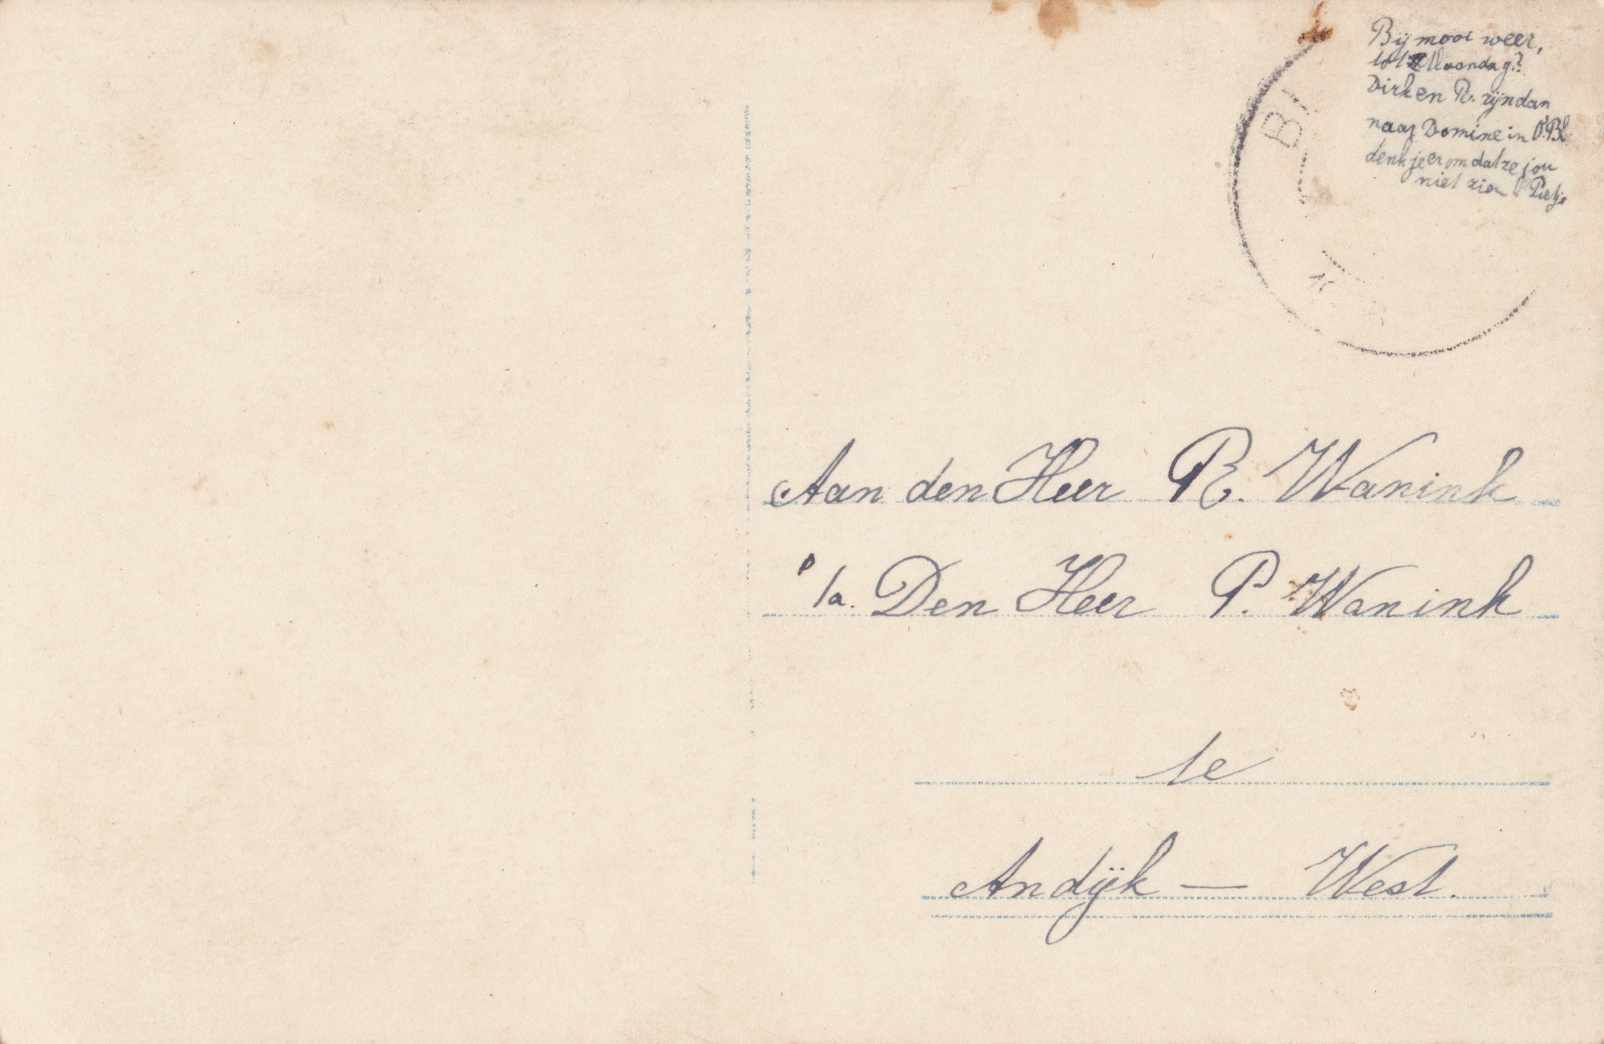 Bij mooi weer,
tot Maandag?
Dirk en R. zijn dan
naar Domine in O.Bl.
denk je er om dat ze jou
niet zien Pietje
B
Aan den Heer R. Wanink
p/a. Den Heer P. Wanink
te
Andijk — West.